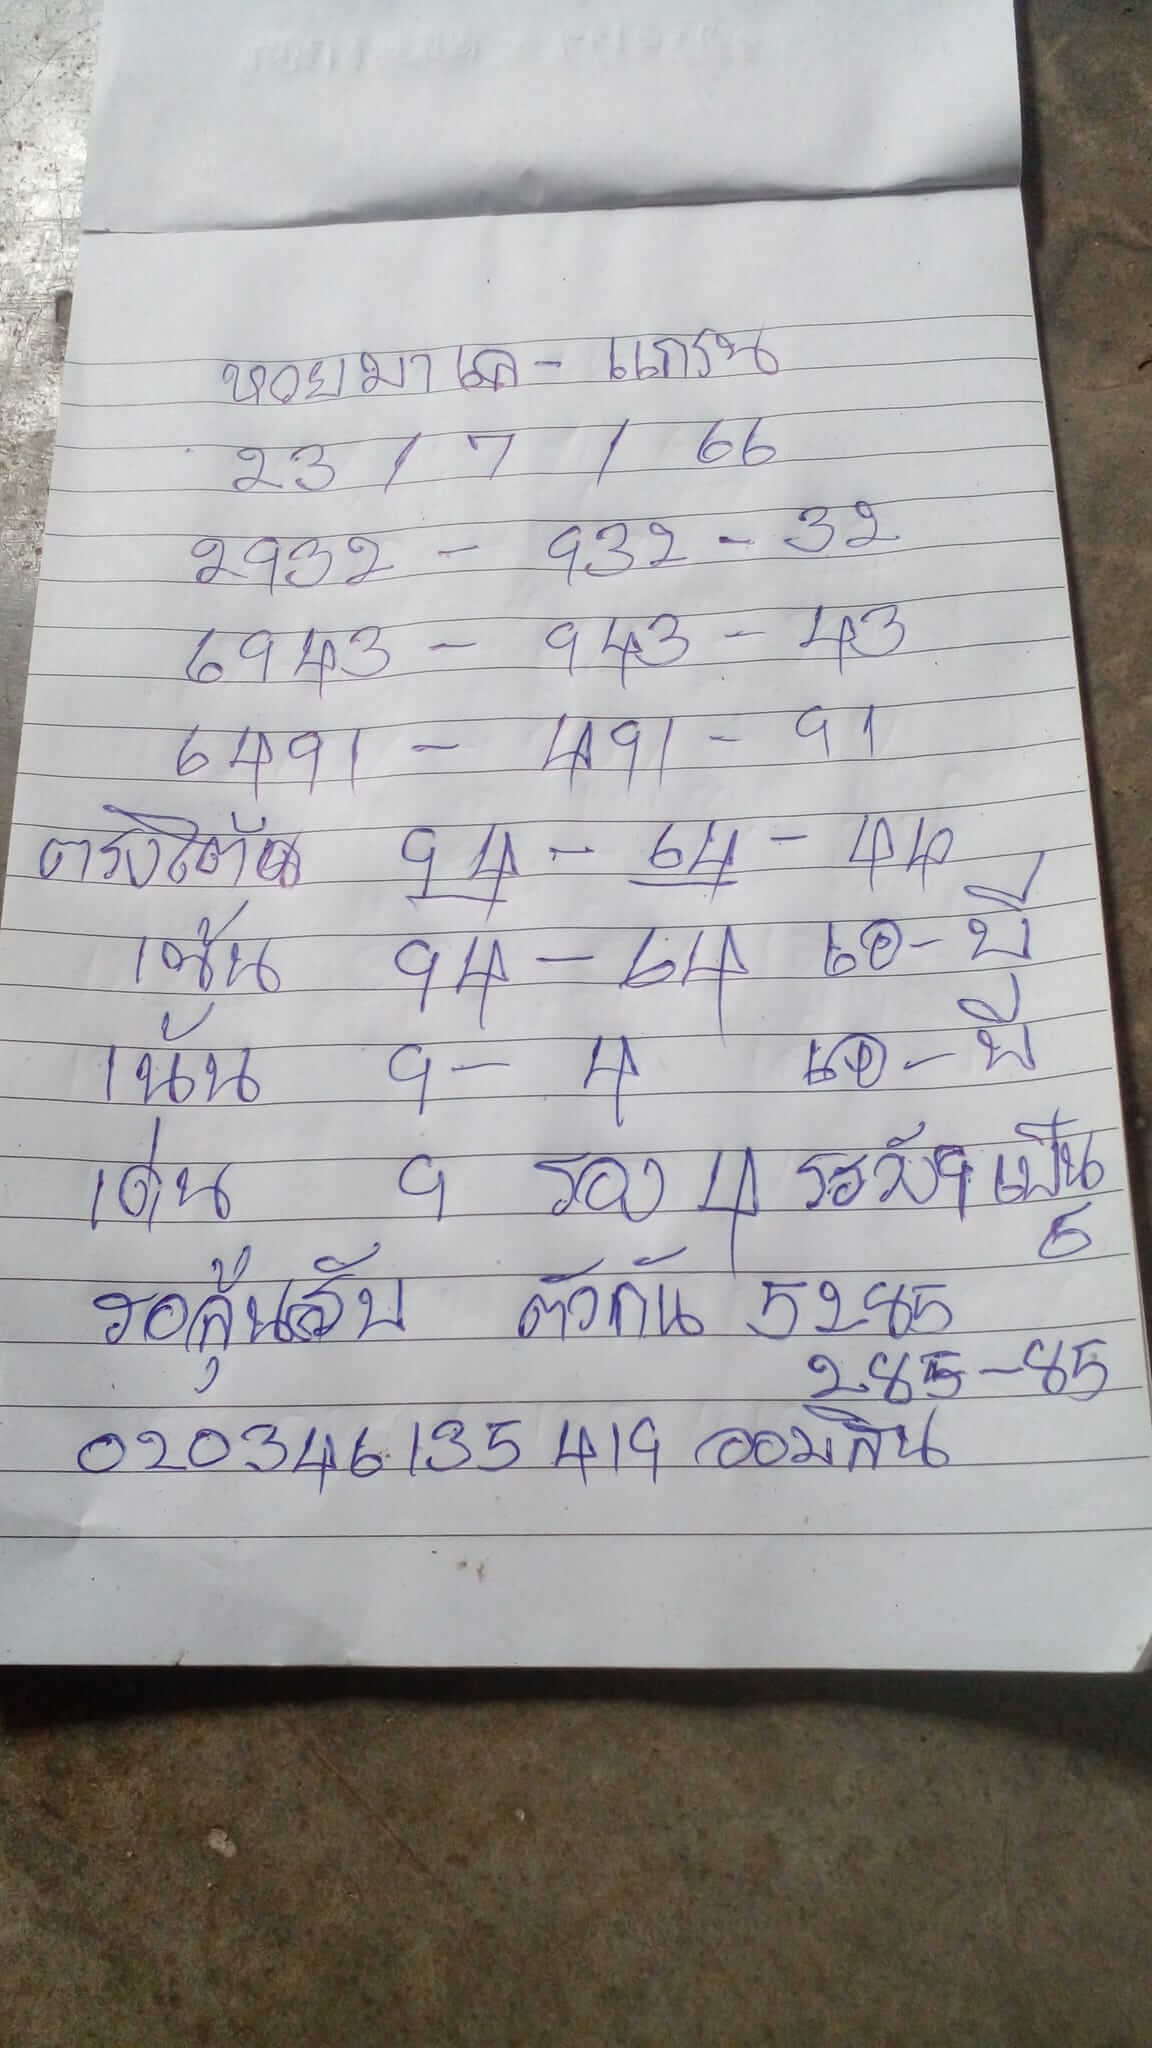 หวยมาเล - แกรน
23 / 7 / 66
2932 - 932 - 32
6943 - 943 - 43
6491 - 491 - 91
ตรงโต๊ด 94 - 64 - 44
เช้น 94 - 64 เอ - บี
เน้น 9 - 4 เอ - บี
เด่น 9 รอง 4 ระวัง 9 เป็น
5
รอลุ้นลับ ตัวกัน 5285
285 - 85
020346135419 ออมสิน